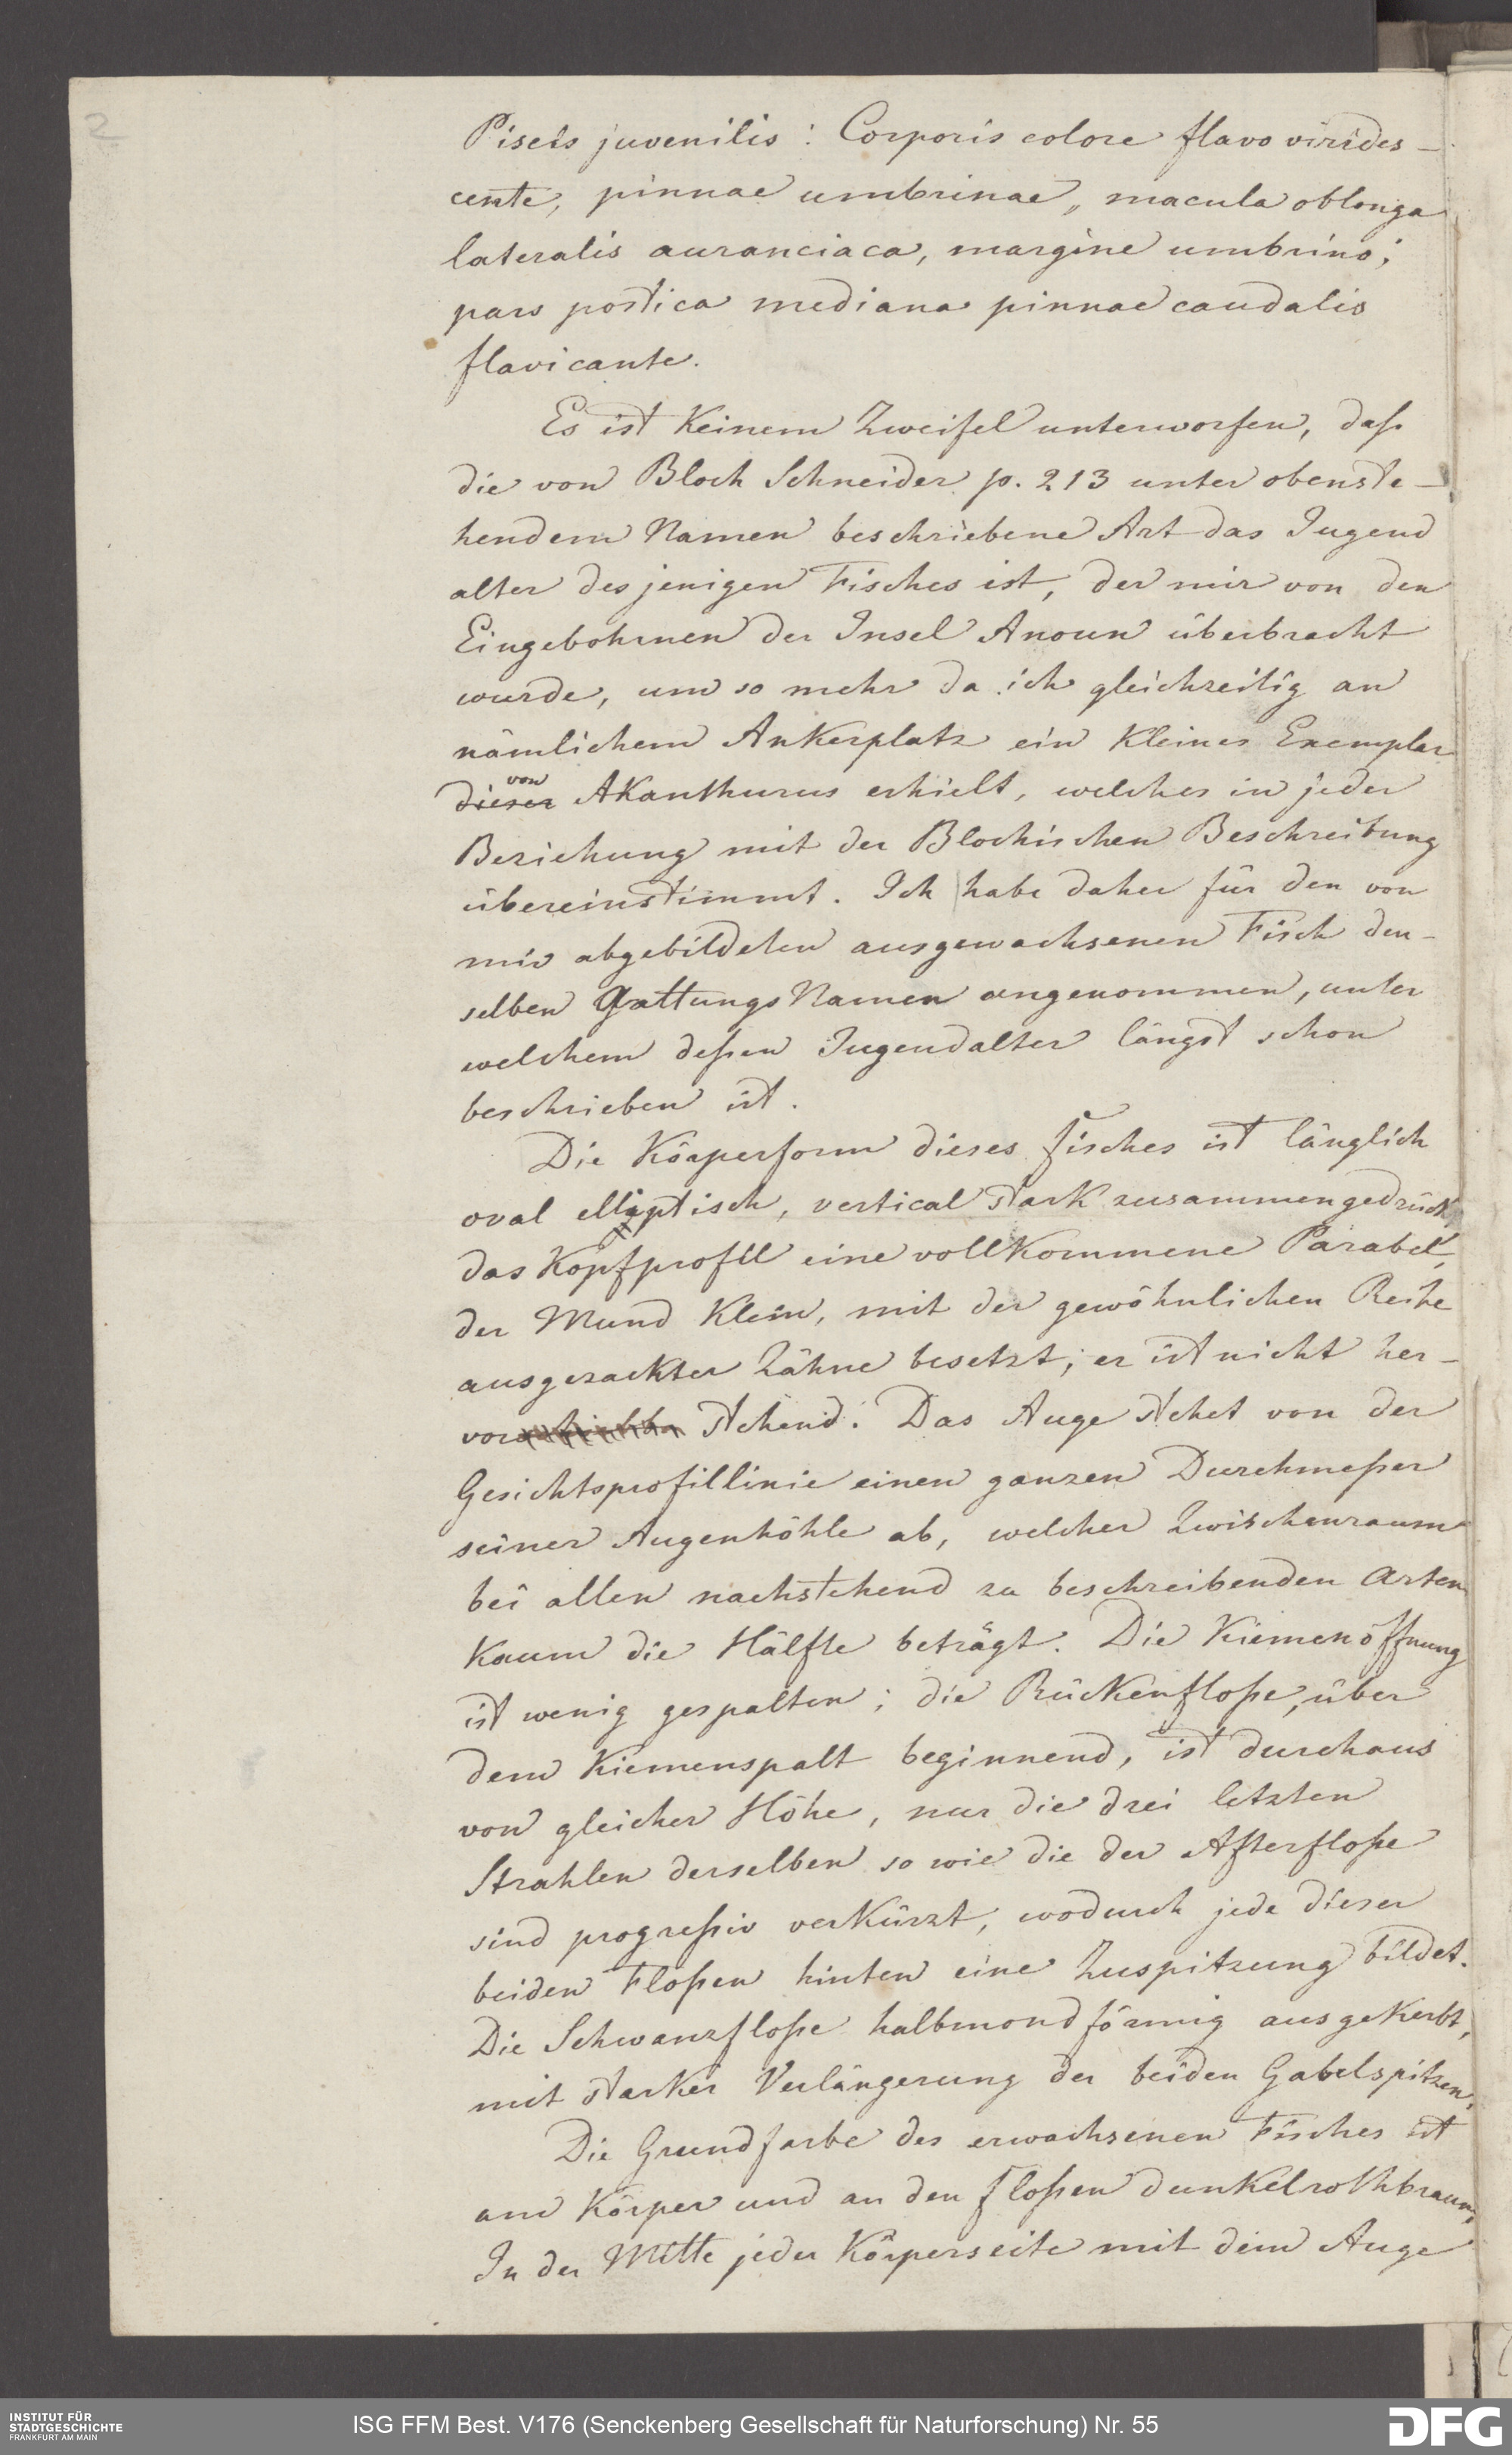 2
Piscis juvenilis : Corporis colore flavo virides-
cente, pinnae umbrinae, macula oblonga
lateralis auranciaca, margine umbrino;
pars postica mediana pinnae caudalis
flavicante.
Es ist keinem Zweifel unterworfen, daß
die von Bloch Schneider p. 213 unter obenste-
hendem Namen beschriebene Art das Jugend
alter desjenigen Fisches ist, der mir von den
Eingebohrnen der Insel Anoun überbracht
wurde, um so mehr da ich gleichzeitig an
nämlichem Ankerplatz ein kleines Exemplar
dieser von Akanthurus erhielt, welches in jeder
Beziehung mit der Blochischen Beschreibung
übereinstimmt. Ich habe daher für den von
mir abgebildeten ausgewachsenen Fisch den-
selben Gattungs Namen angenommen, unter
welchem deßen Jugendalter längst schon
beschrieben ist.
Die Körperform dieses Fisches ist länglich
oval elliptisch, vertical stark zusammengedrückt
das Kopfprofil eine vollkommene Parabel,
der Mund klein, mit der gewöhnlichen Reihe
ausgezackter Zähne besetzt; er ist nicht her-
vor stehend. Das Auge stehet von der
Gesichtsprofillinie einen ganzen Durchmeßer
seiner Augenhöhle ab, welcher Zwischenraum
bei allen nachstehend zu beschreibenden Arten
kaum die Hälfte beträgt. Die Kiemenöffnung
ist wenig gespalten; die Rückenfloße, über
dem Kiemenspalt beginnend, ist durchaus
von gleicher Höhe, nur die drei letzten
Strahlen derselben so wie die der Afterfloße
sind progreßiv verkürzt, wodurch jede dieser
beiden Floßen hinten eine Zuspitzung bildet.
Die Schwanzfloße halbmondförmig ausgekerbt,
mit starker Verlängerung der beiden Gabelspitzen.
Die Grundfarbe des erwachsenen Fisches ist
am Körper und an den Floßen dunkelrothbraun,
In der Mitte jeder Körperseite mit dem Auge
INSTITUT FÜR
STADTGESCHICHTE
FRANKFURT AM MAIN
ISG FFM Best. V176 (Senckenberg Gesellschaft für Naturforschung) Nr. 55
DFG